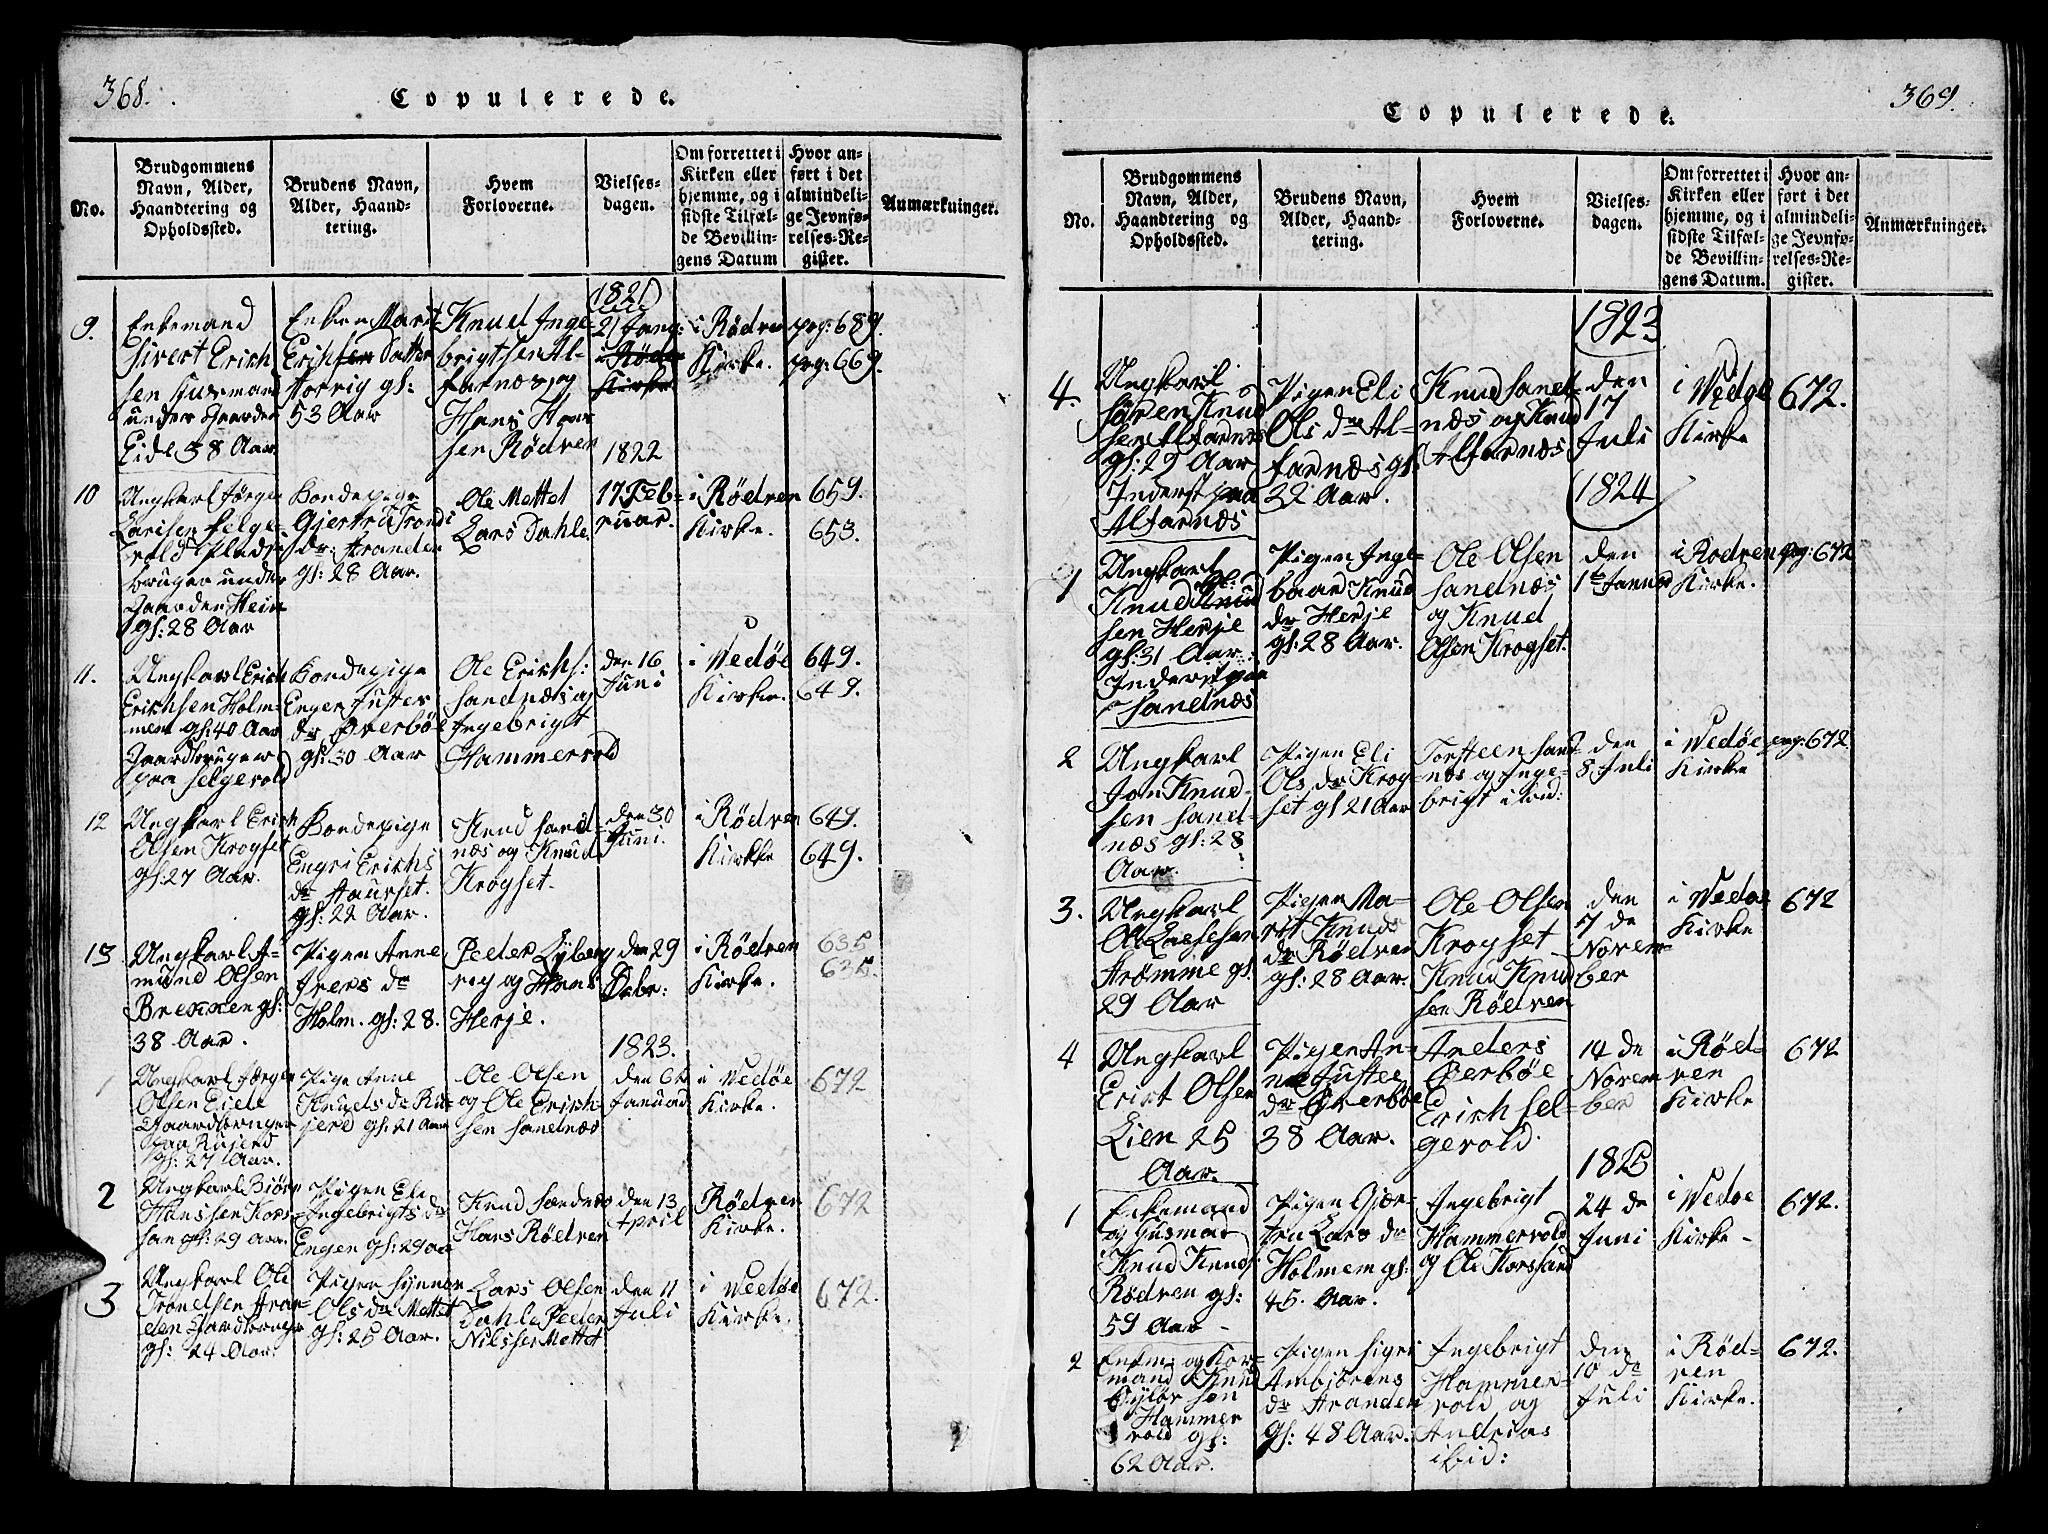 368.
Copulerede.
No.
Brudgommens
Navn, Alder,
Haandtering og
Opholdssted.
Brudens Navn,
Alder, Haand-
tering.
Hvem
Forloverne.
Vielses-
dagen.
Om forrettet i
Kirken eller
hjemme, og i
sidste Tilfæl-
de Bevillin-
gens Datum
Hvor an-
ført i det
almindeli-
ge Jevnfø-
relses-Re-
gister.
Anmærkninger.
9.
Enkemand
Sivert Erich
sen Husmand
under Gaarden
Eide 58 Aar
Enken Marit
Erichsen Datter
Torvig gs:
53 Aar
Knud Inge-
brigtsen Al-
farnæs og
Hans Han
sen Rödven
1821
21 Jang:
i Röd
Kirke
i Rödven
Kirke.
pag: 689.
pag: 669.
10
Ungkarl Jörgen
Larisen Selge-
vold Plads
bruger under
Gaarden Hein
gs: 28 Aar
Bondepige
Gjertru Trond
dr. Stranden
gs: 28 Aar.
Ole Mettet
Lars Dahle
1822
17 Feb-
ruar.
i Rödven
Kirke.
659.
653.
11.
Ungkarl Erich
Erichsen Holm-
mem gs: 40 Aar
Gaardbruger
paa Selgevold
Bondepige
Engen Juster
dr Overböe
gs: 30 Aar
Ole Erichs:
Sandnæs og
Ingebrigt
Hammervold
den 16
Juni
i Wedöe
Kirke.
649.
649.
12
Ungkarl Erich
Olsen Krogset
gs: 27 Aar.
Bondepige
Engri Erichs
dr Haurset.
gs: 22 Aar.
Knud Sand-
næs og Knud
Krogset.
den 30
Juni.
i Rödven
Kirkke
649.
649.
13
Ungkarl A-
mund Olsen
Brekken gs:
38 Aar.
Pigen Anne
Ivers dr
Holm. gs: 28.
Peder Lyberg
og Hans
Herje.
den 29
Debr:
i Rödven
Kirke.
635
635.
1823.
1
Ungkarl Jörgen
Olsen Eide
Gaardbruger
paa Rujerd
gs: 27 Aar.
Pige Anne
Knuds dr Ru-
jerd gs: 21 Aar
Ole Olsen
og Ole Erich
sen Sandnæs
den 6te
Januar
i Wedöe
Kirke.
672
2
Ungkarl Biörn
Hanssen Kors-
san gs: 29 Aar.
Pigen Eli
Ingebrigts dr
Engen gs: 29 aar
Knud Sandnæs
Hans Rödven
den 13
April
Rödven
Kirke.
672
3
Ungkarl Ole
Trondsen Stran-
den Gaardbruger
gs: 24 Aar.
Pigen Synnev
Ols dr Mettet
gs: 25 Aar.
Lars Olsen
Dahle Peder
Nilssen Mettet
den 11
Juli
i Wedöe
Kirke.
672.
369.
Copulerede.
No.
Brudgommens
Navn, Alder,
Haandtering og
Opholdssted.
Brudens Navn,
Alder, Haand-
tering.
Hvem
Forloverne.
Vielses-
dagen.
Om forrettet i
Kirken eller
hjemme, og i
sidste Tilfæl-
de Bevillin-
gens Datum.
Hvor an-
ført i det
almindeli-
ge Jevnfø-
relses-Re-
gister.
Anmærkninger.
1823
4.
Ungkarl
Sören Knud
sen Alfarnæs
gs: 29 Aar
Inderst paa
Alfarnæs
Pigen Eli
Ols dr Al-
farnæs gs
32 Aar.
Knud Sand-
næs og Knud
Alfarnæs
den
17
Juli
i Wedöe
Kirke
672.
1824
1
Ungkarl
Knud Knud
sen Herje
gs: 31 Aar.
Inderst paa
Sandnæs
Pigen Inge-
baar Knud
dr Herje
gs: 28 Aar.
Ole Olsen
Sandnæs
og Knud
Olsen Krogset.
den
1te Januar
i Rodven
Kirke.
pag: 672
2
Ungkarl
Jon Knud-
sen Sand-
næs gs: 28
Aar.
Pigen Eli
Ols dr Krog-
set gs 21 Aar
Torsteen Sand-
næs og Inge-
brigt ibid:
den
8 Juli
i Wedöe
Kirke
pag: 672
3.
Ungkarl
Ole Larssen
Strømme gs.
29 Aar
Pigen Ma-
rit Knuds
dr Rödven
gs: 28 Aar.
Ole Olsen
Krogset
Knud Knud
sen Rödven
den
7 de
Novem-
ber
i Wedöe
Kirke
672
4
Ungkarl
Erict Olsen
Lien 25
Aar.
Pigen An-
ne Juster
dr Overböe
38 Aar.
Anders
Overböe
Erich Sel-
gevold.
14 de
Novem-
ber
i Röd-
ven
Kirke
672
1825
1
Enkemand
og Husmand
Knud Knuds
Rödven gs:
59 Aar -
Pigen Gjer-
tru Lars dr
Holmem gs:
45. Aar.
Ingebrigt
Hammervold
og Ole Korssand
24 de
Juni
i Wedöe
Kirke -
672.
2
Enkem: og Kor-
mand Knud
Hammer
vold gs:
62 Aar.
Pigen Sigri
Ambjörens
dr Stranden
gs: 48 Aar.
Ingebrigt
Hammer-
vold og
Andrias
ibid:
den
10 de
Juli
i Röd-
ven
Kirke.
672.